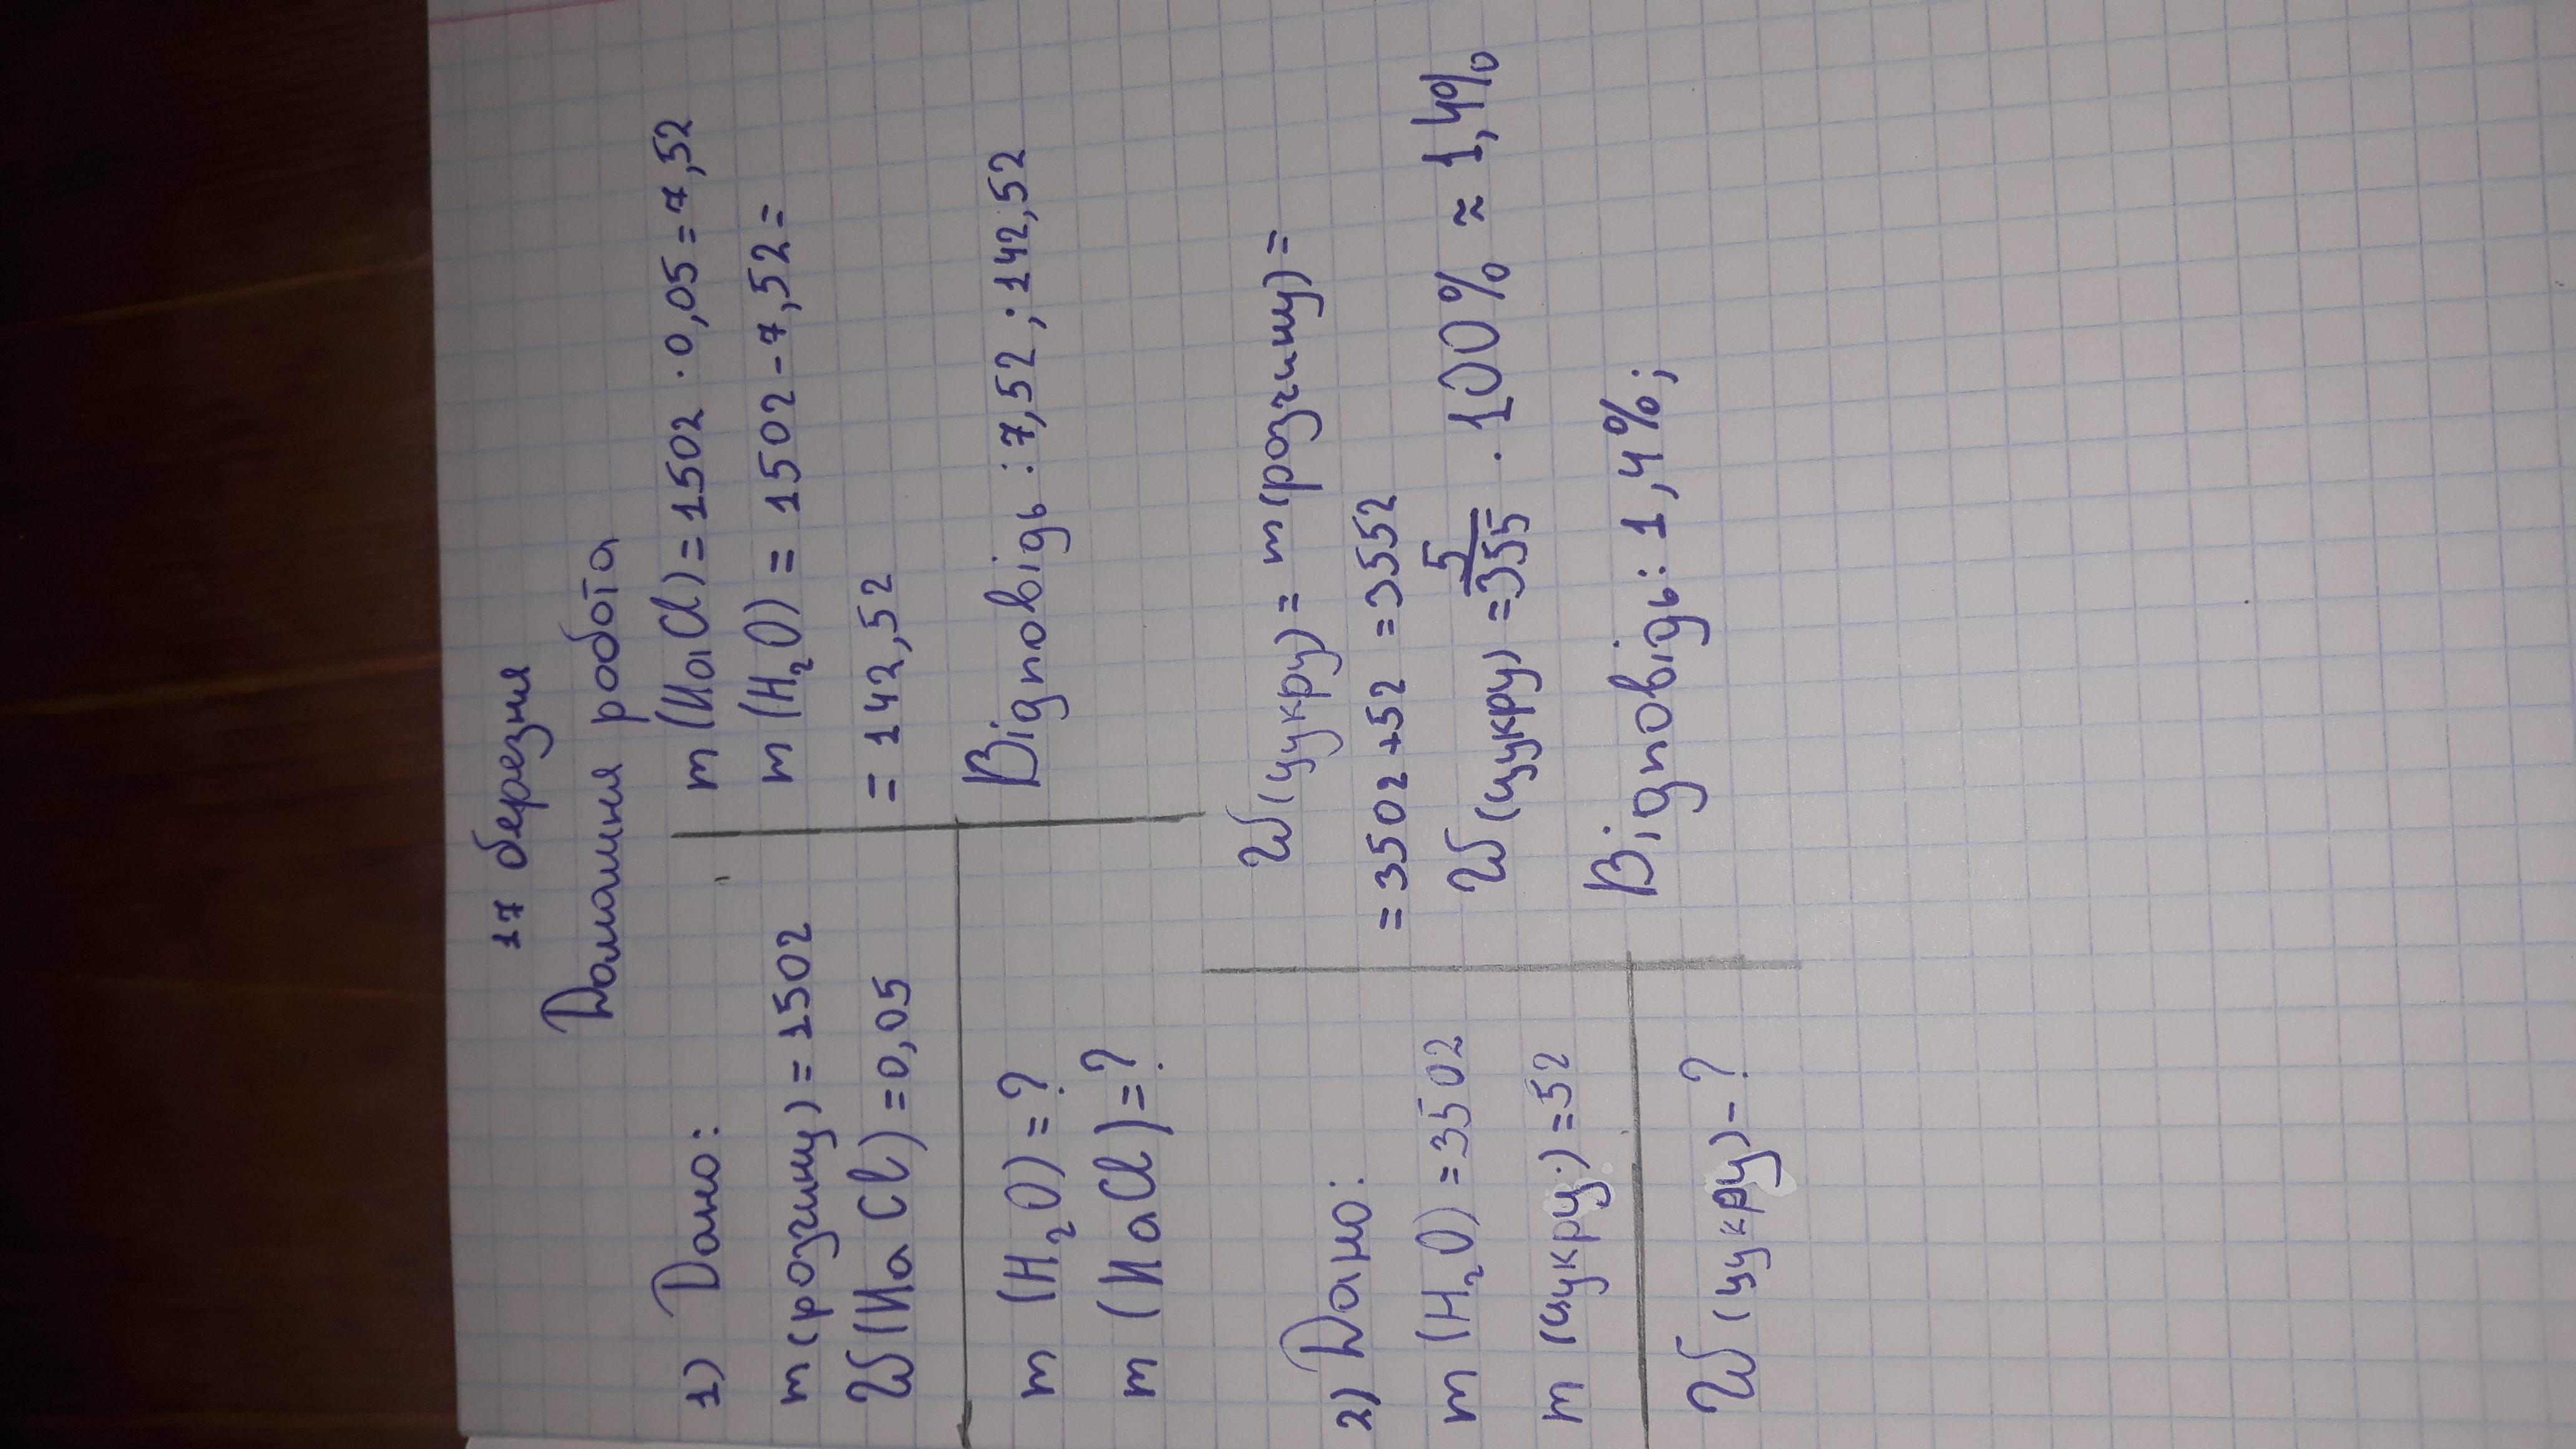 17 березня
Домашня робота
1) Дано:
m (розчину) = 150г
W (NaCl) = 0,05
m (H₂O) = ?
m (NaCl) = ?
m (NaCl) = 150г · 0,05 = 7,5г
m (H₂O) = 150г - 7,5г =
= 142,5г
Відповідь : 7,5г ; 142,5г
2) Дано:
m (H₂O) = 350г
m (цукру) = 5г
W (цукру) - ?
W (цукру) = m (розчину) =
= 350г + 5г = 355г
W (цукру) = 5/355 · 100% ≈ 1,4%
Відповідь: 1,4%;